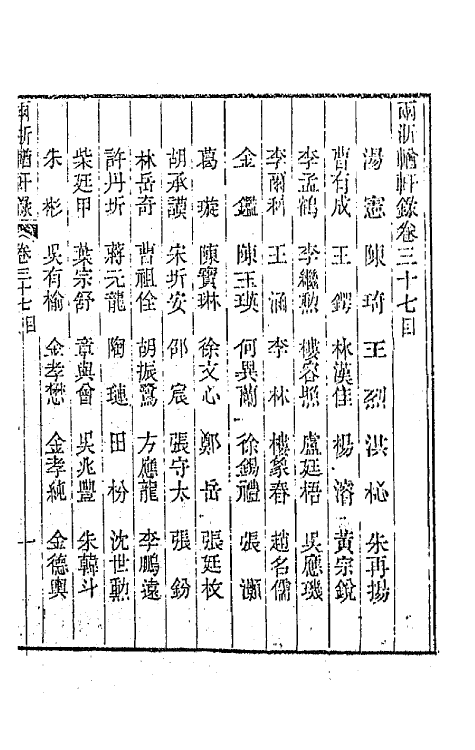 兩浙輶軒錄卷三十七目
湯憲 陳琦 王烈 洪杺 朱再揚
曹有成 王鍔 林漢佳 楊濬 黃宗銳
李孟鶴 李繼勲 樓容照 盧廷梧 吳應璣
李爾利 王涵 李林 樓彖春 趙名儒
金鑑 陳玉瑛 何異蘭 徐錫禮 張灝
葛璇 陳寶琳 徐文心 鄭岳 張廷枚
胡承謨 宋圻安 邵宸 張守太 張鈖
林岳奇 曹祖佺 胡振鷺 方應龍 李鵬遠
許丹圻 蔣元龍 陶璉 田枌 沈世勲
柴廷甲 葉宗舒 章與曾 吳兆豐 朱韓斗
朱彬 吳有榆 金孝懋 金孝純 金德輿
兩浙輶軒錄 卷三十七目 一